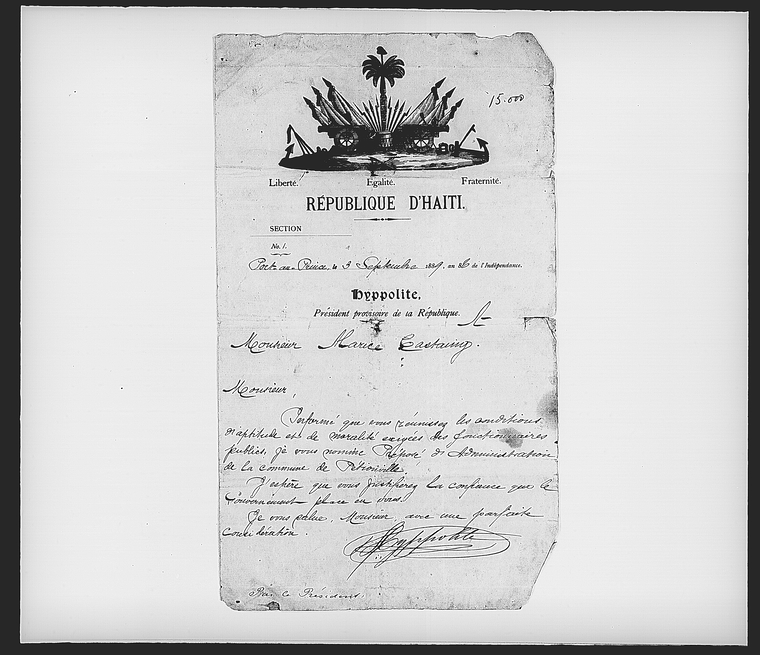 15.000
Liberté. Egalité. Fraternité.
RÉPUBLIQUE D'HAITI.
SECTION
No. 1.
Port-au-Prince, le 3 Septembre 1889, an 86 de l'Indépendance.
Hyppolite,
Président provisoire de la République.
A
Monsieur Marice Castaing.
Monsieur,
Informé que vous réunissez les conditions
d'aptitude et de moralité exigées des fonctionnaires
publics, je vous nomme Préposé d'Administration
de la commune de Pétionville.
J'espère que vous justifierez la confiance que le
Gouvernement place en vous.
Je vous salue, Monsieur, avec une parfaite
considération.
Hyppolite
Par le Président: